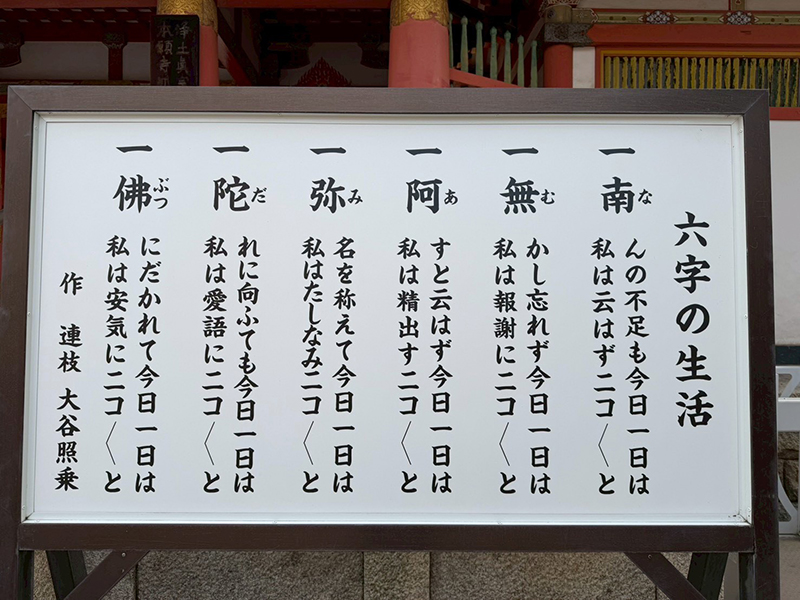 六字の生活
一 南 な
んの不足も今日一日は
私は云はず二コ〱と
一 無 む
かし忘れず今日一日は
私は報謝に二コ〱と
一 阿 あ
すと云はず今日一日は
私は精出す二コ〱と
一 弥 み
名を称えて今日一日は
私はたしなみ二コ〱と
一 陀 だ
れに向ふても今日一日は
私は愛語に二コ〱と
一 佛 ぶつ
にだかれて今日一日は
私は安気に二コ〱と
作 連枝 大谷照乗